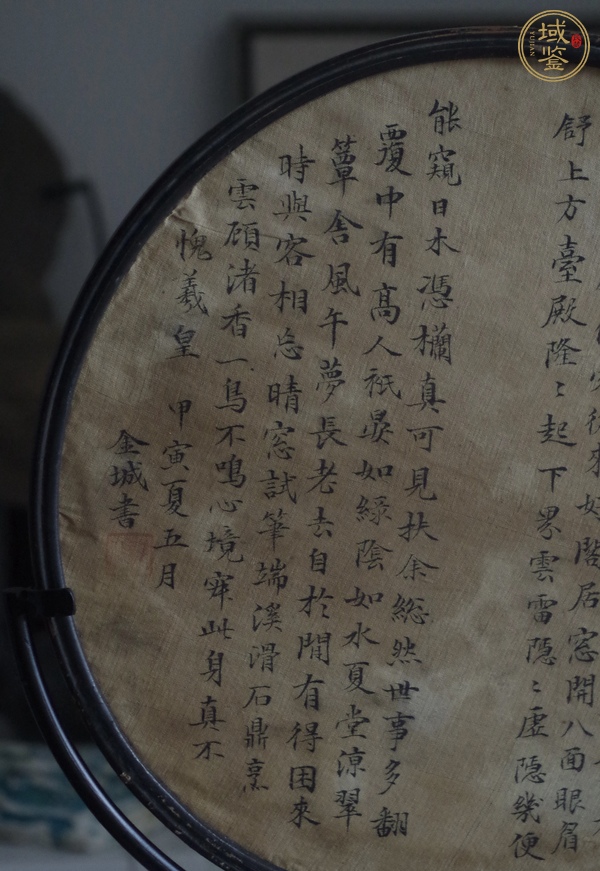 來好閣居窓開八面眼眉
舒上方臺殿隆〻起下界雲雷隱〻虛隱幾便
能窺日木憑欄真可見扶余総然世事多翻
覆中有高人袛晏如緑陰如水夏堂涼翠
簟含風午夢長老去自於閒有得困來
時與客相忘晴窓試筆端溪滑石鼎烹
雲顧渚香一鳥不鳴心境寂此身真不
愧羲皇
甲寅夏五月
金城書
域鑒
YUJIAN